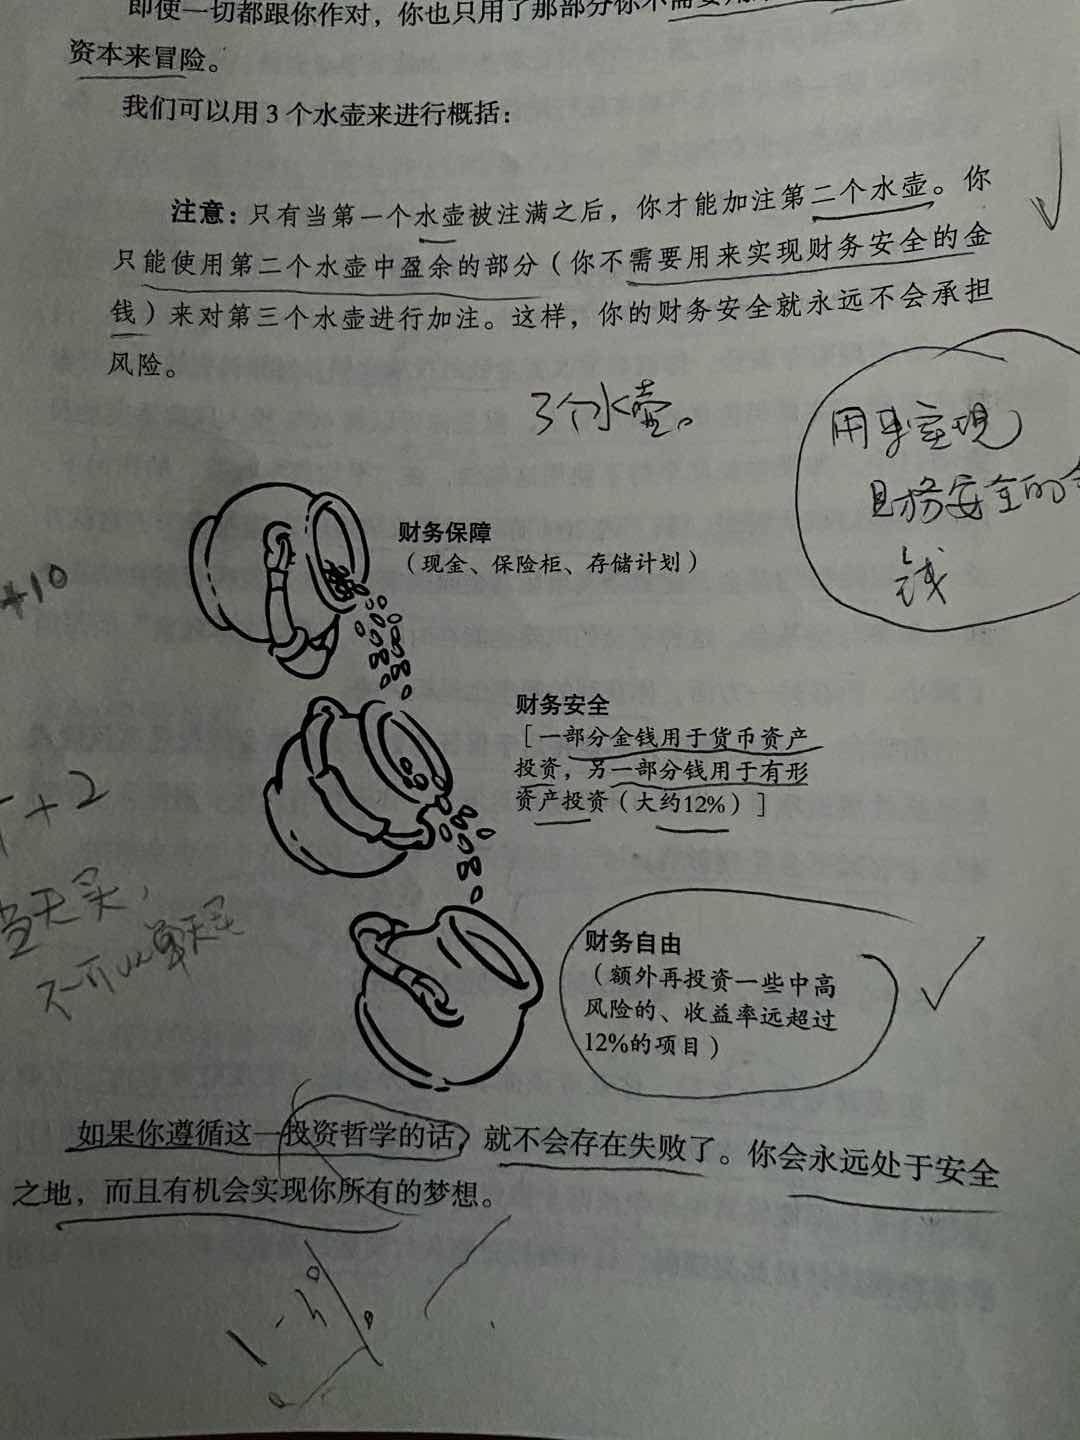 即使一切都跟你作对，你也只用了那部分你不需要用
资本来冒险。
我们可以用3个水壶来进行概括：
注意：只有当第一个水壶被注满之后，你才能加注第二个水壶。你
只能使用第二个水壶中盈余的部分（你不需要用来实现财务安全的金
钱）来对第三个水壶进行加注。这样，你的财务安全就永远不会承担
风险。
3个水壶。
用来实现
财务安全的
钱
财务保障
（现金、保险柜、存储计划）
+10
财务安全
［一部分金钱用于货币资产
投资，另一部分钱用于有形
资产投资（大约12%）］
T+2
当天买，
不可以单天卖
财务自由
（额外再投资一些中高
风险的、收益率远超过
12%的项目）
如果你遵循这一投资哲学的话，就不会存在失败了。你会永远处于安全
之地，而且有机会实现你所有的梦想。